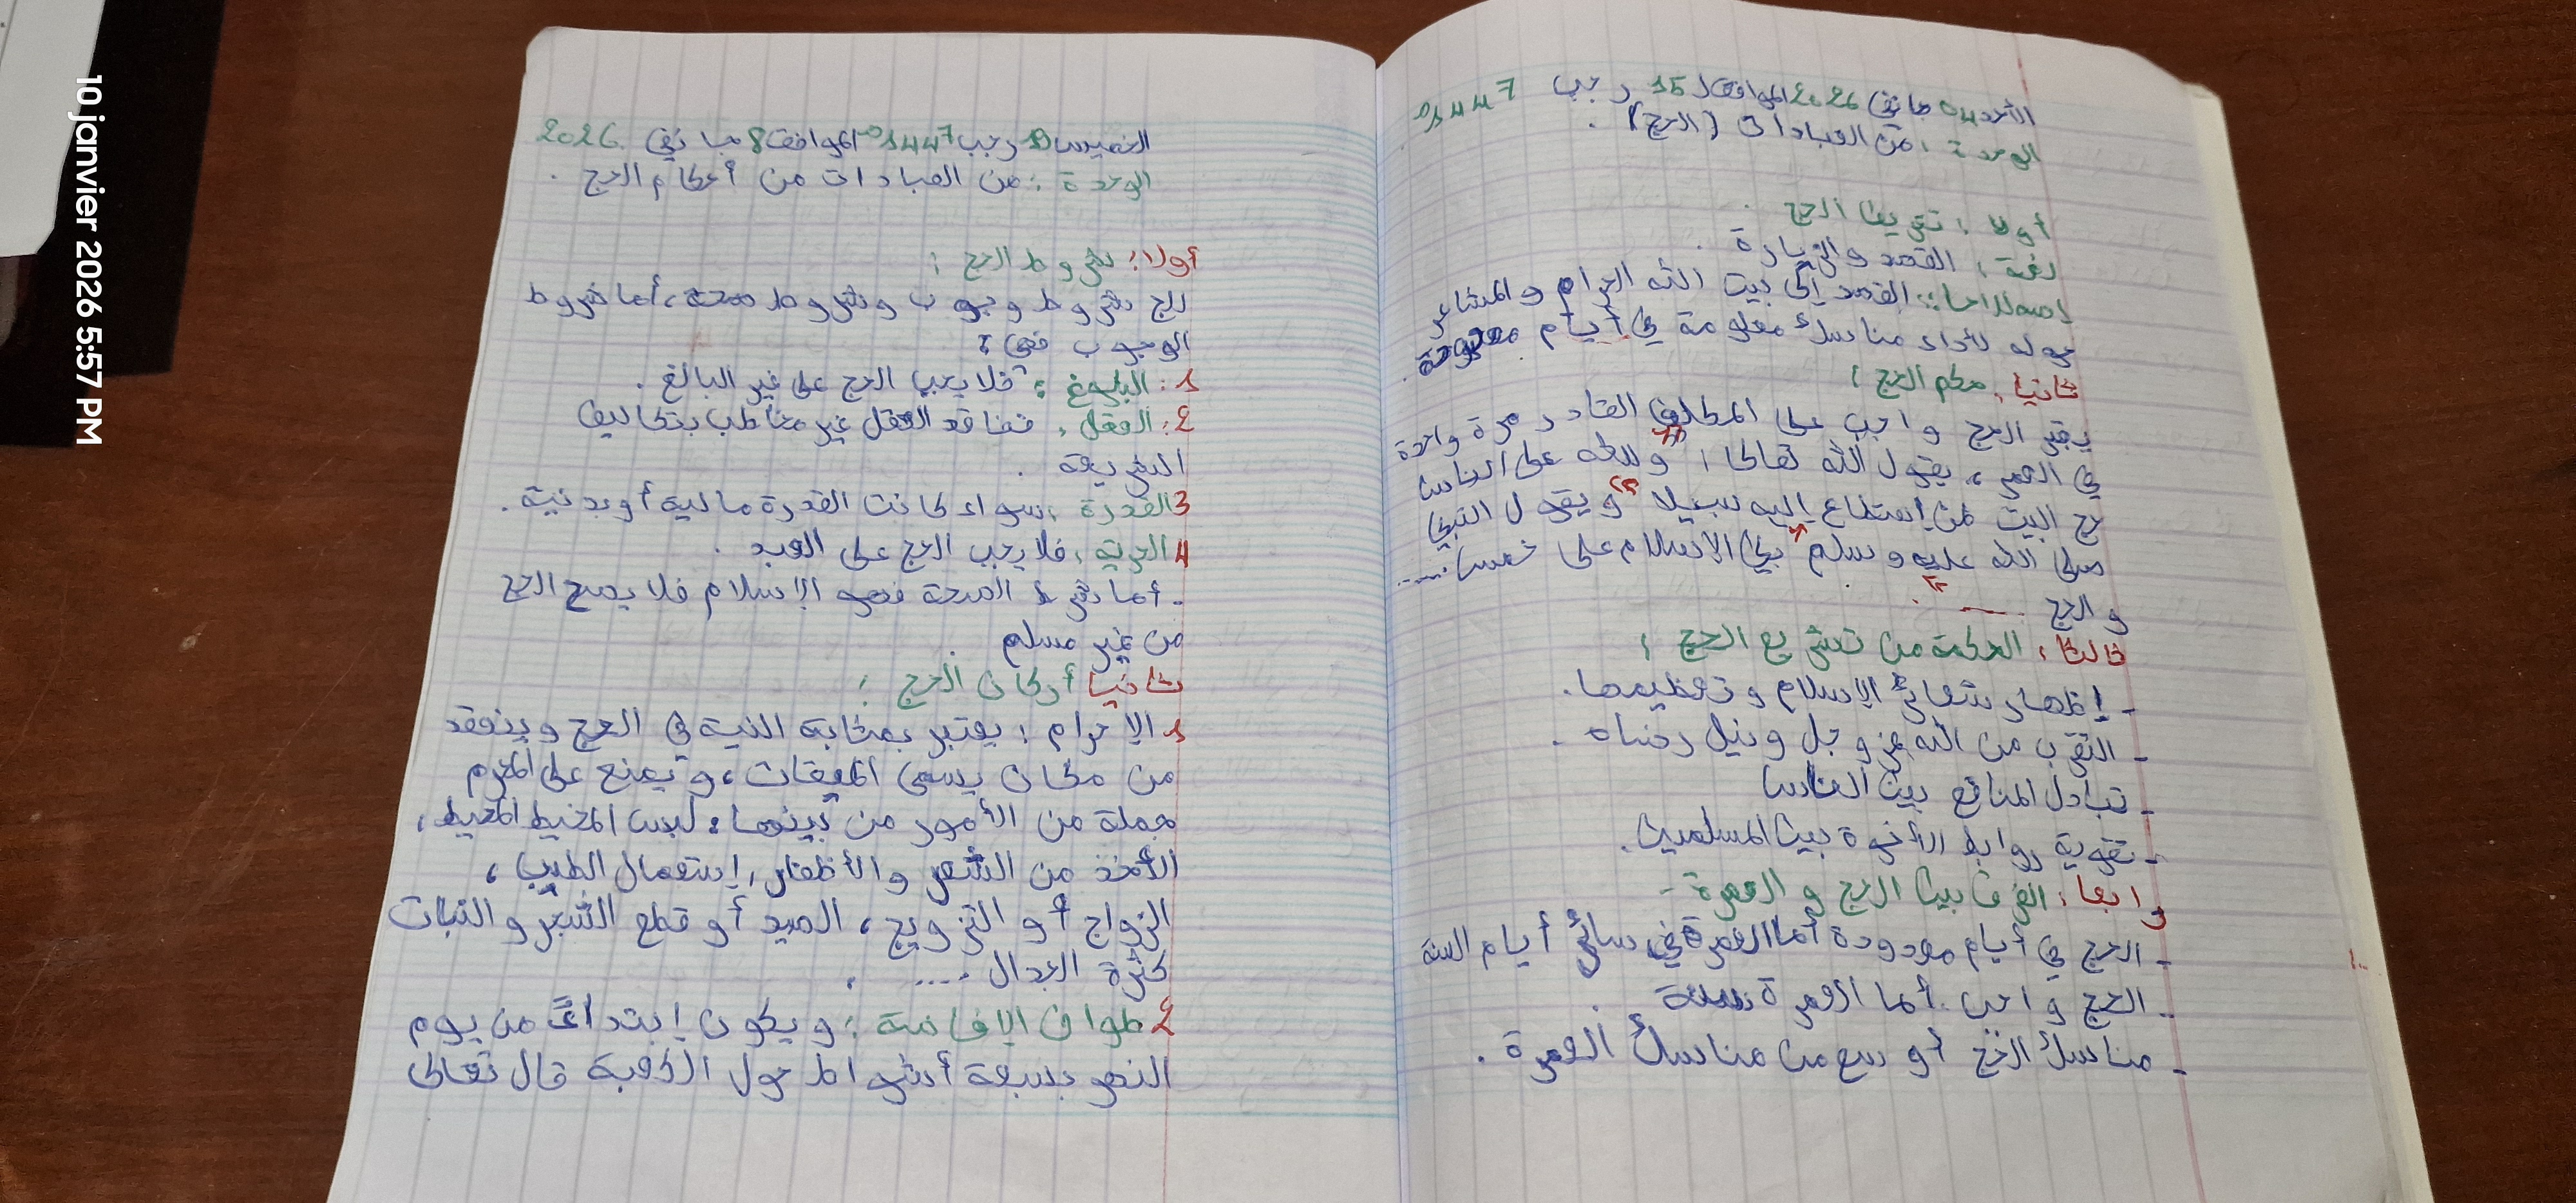 الأحد 04 جانفي 2026 الموافق ل 15 رجب 1447هـ
الوحدة : من العبادات (الحج) .
أولا : تعريف الحج .
لغة : القصد والزيارة .
إصطلاحا : القصد إلى بيت الله الحرام و المشاعر
حوله لأداء مناسك معلومة في أيام معلومة .
ثانيا : حكم الحج :
يعتبر الحج واجب على المكلف القادر مرة واحدة
في العمر ، يقول الله تعالى : " ولله على الناس
حج البيت من إستطاع إليه سبيلا " و يقول النبي
صلى الله عليه و سلم " بني الإسلام على خمس .....
و الحج ...... " .
ثالثا : الحكمة من تشريع الحج :
- إظهار شعائر الإسلام و تعظيمها .
- التقرب من الله عز وجل ونيل رضاه .
- تبادل المنافع بين الناس
- تقوية روابط الأخوة بين المسلمين .
رابعا : الفرق بين الحج و العمرة -
- الحج في أيام معدودة أما العمرة في سائر أيام السنة
- الحج واجب أما العمرة سنة .
- مناسك الحج أوسع من مناسك العمرة .
الخميس 19 رجب 1447هـ الموافق 8 جانفي 2026
الوحدة : من العبادات من أحكام الحج .
أولا : شروط الحج :
للحج شروط وجوب وشروط صحة ، أما شروط
الوجوب فهي :
1 : البلوغ : فلا يجب الحج على غير البالغ .
2 : العقل : ففاقد العقل غير مخاطب بتكاليف
الشريعة .
3 القدرة : سواء كانت القدرة مالية أو بدنية .
4 الحرية : فلا يجب الحج على العبد .
- أما شرط الصحة فهو الإسلام فلا يصح الحج
من غير مسلم .
ثانيا أركان الحج :
1 الإحرام : يعتبر بمثابة النية في الحج وينعقد
من مكان يسمى الميقات ، و يمنع على المحرم
جملة من الأمور من بينها : لبس المخيط المحيط ،
الأخذ من الشعر و الأظفار , إستعمال الطيب ،
الزواج أو التزويج ، الصيد أو قطع الشجر و النبات
كثرة الجدال .... .
2 طواف الإفاضة : ويكون إبتداءً من يوم
النحر بسبعة أشواط حول الكعبة قال تعالى
10 janvier 2026 5:57 PM